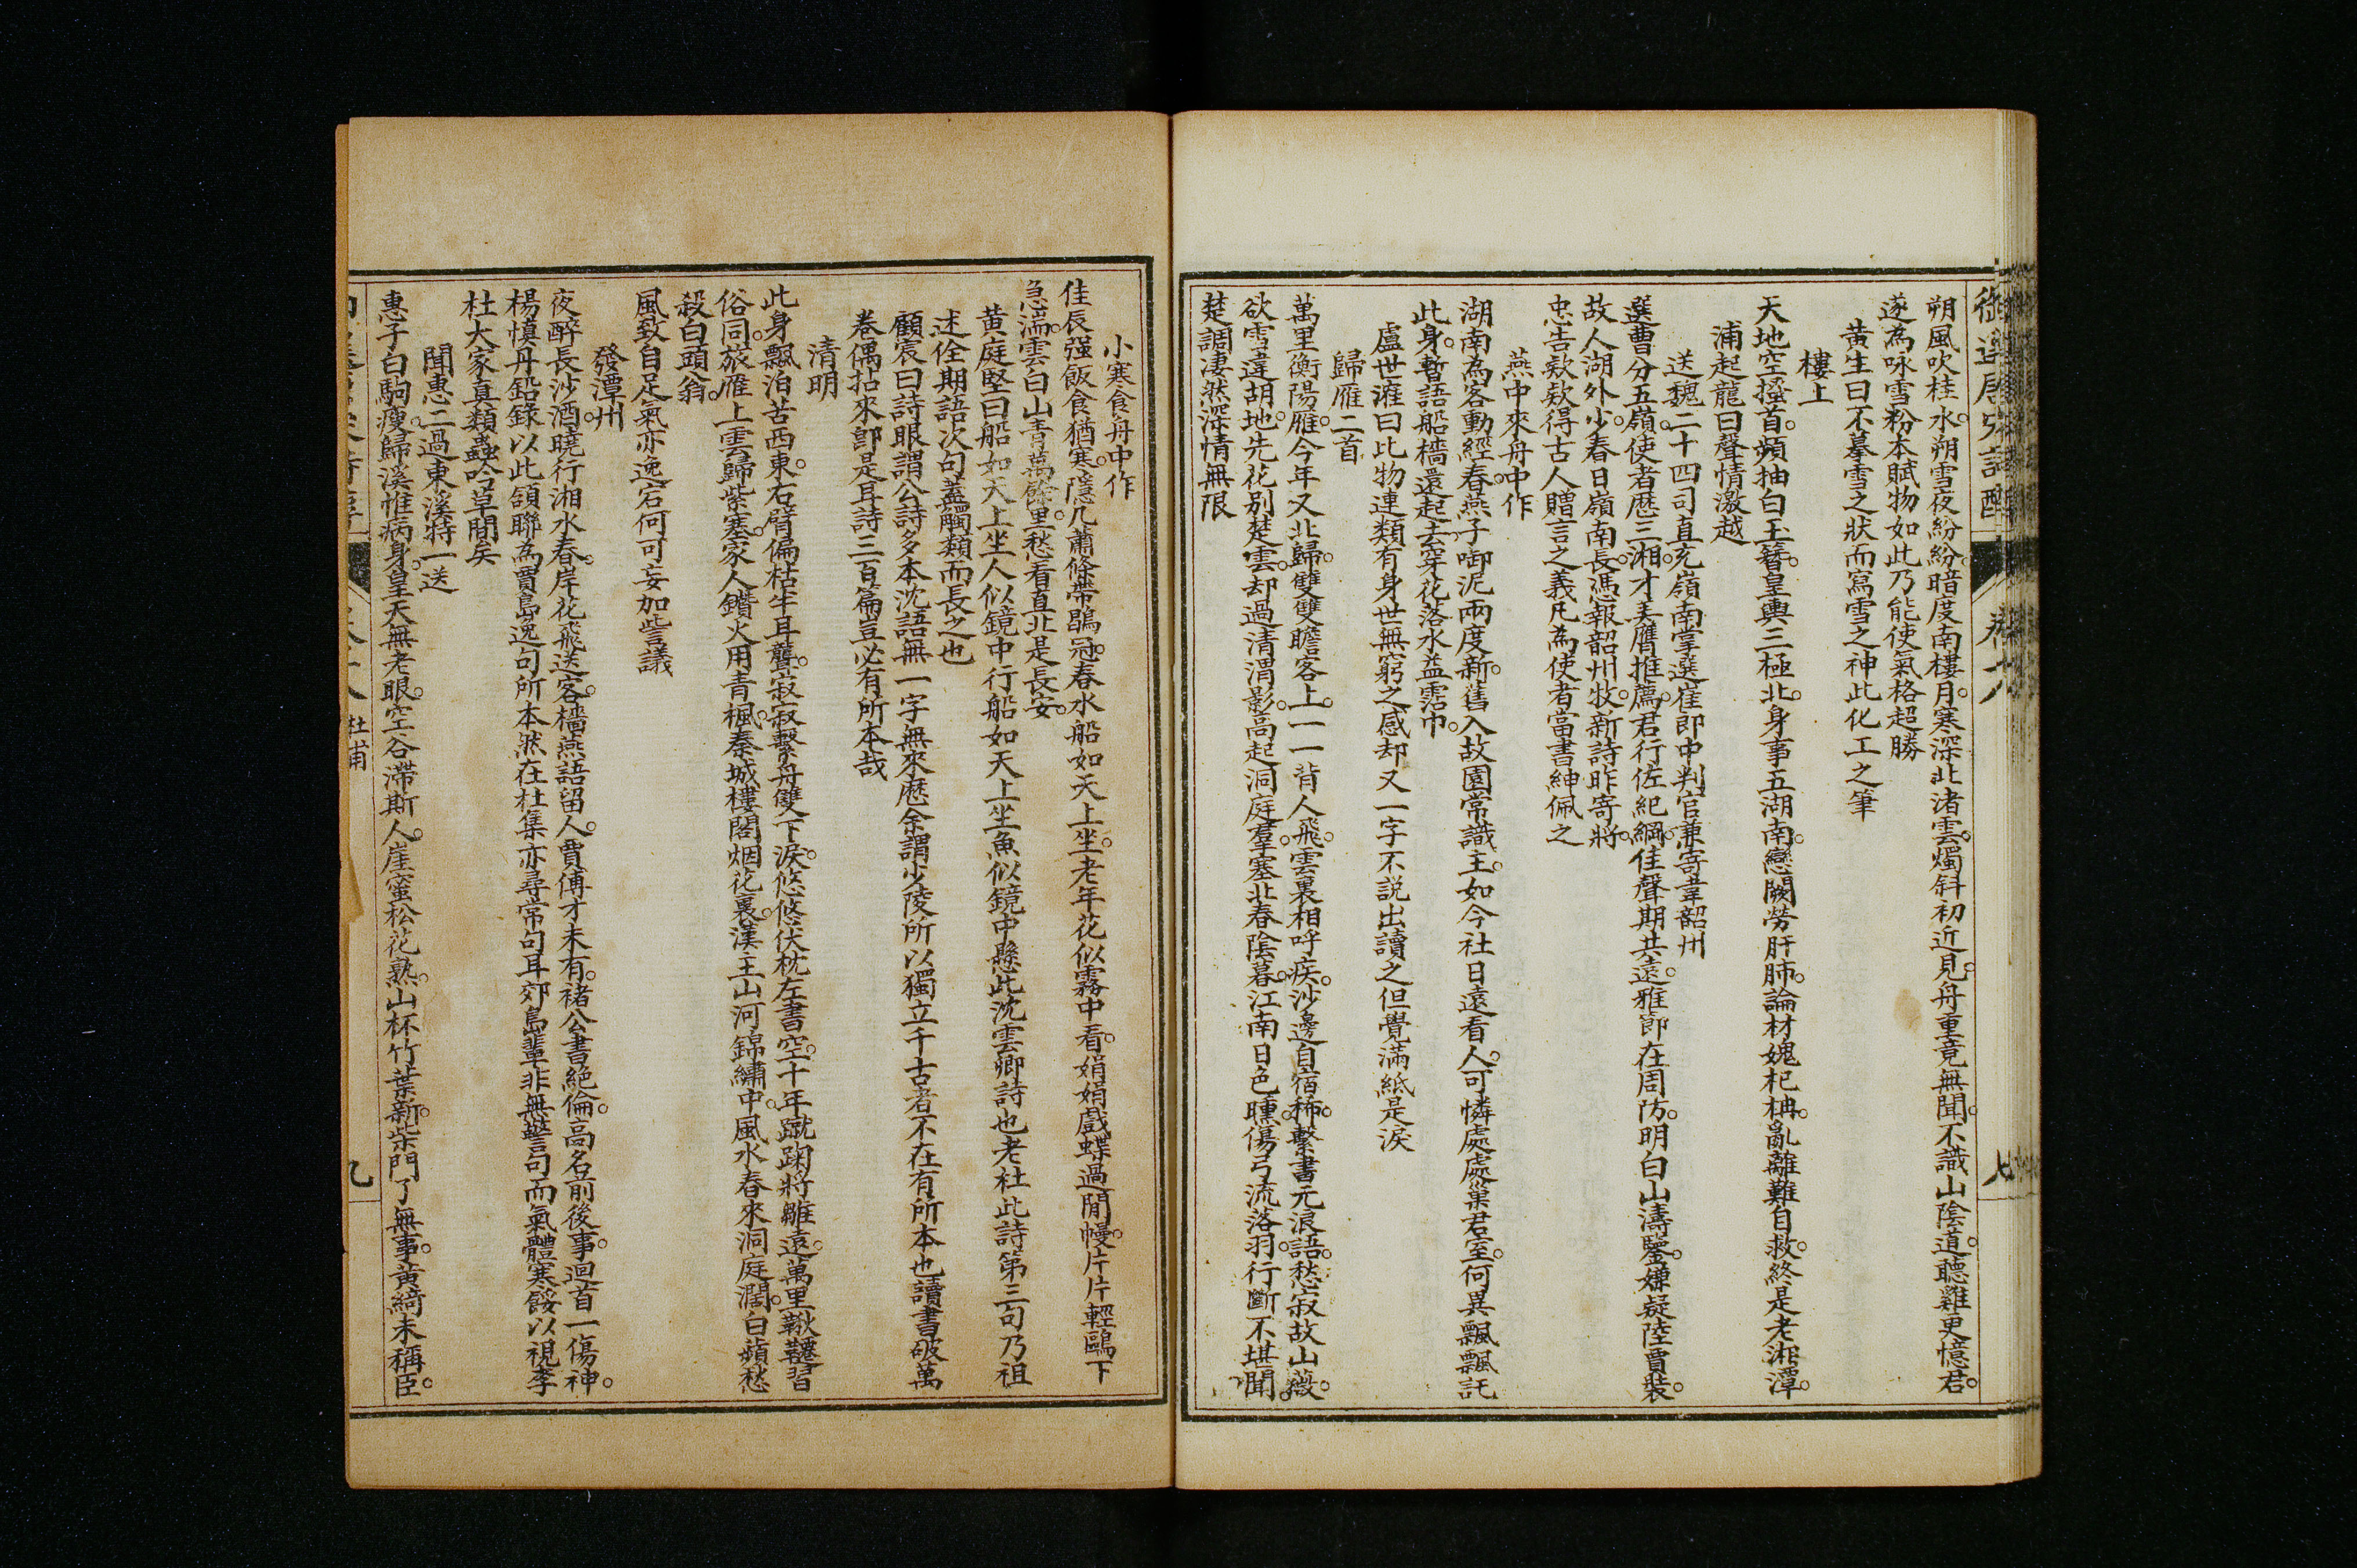 朔風吹桂水。朔雪夜紛紛。暗度南樓月。寒深北渚雲。燭斜初近見。舟重竟無聞。不識山陰道。聽雞更憶君。
遂為咏雪粉本賦物如此乃能使氣格超勝
黄生曰不摹雪之狀而寫雪之神此化工之筆
樓上
天地空搔首。頻抽白玉簪。皇輿三極北。身事五湖南。戀闕勞肝肺。論材媿杞柟。亂離難自救。終是老湘潭。
浦起龍曰聲情激越
送魏二十四司直充嶺南掌選崔郎中判官兼寄韋韶州
選曹分五嶺。使者歷三湘。才美膺推薦。君行佐紀綱。佳聲期共遠。雅節在周防。明白山濤鑒。嫌疑陸賈裝。
故人湖外少。春日嶺南長。馮報韶州牧。新詩昨寄將。
忠告欵欵得古人贈言之義凡為使者當書紳佩之
燕中來舟中作
湖南為客動經春。燕子啣泥兩度新。舊入故園常識主。如今社日遠看人。可憐處處巢君室。何異飄飄託
此身。暫語船檣還起去。穿花落水益霑巾。
盧世㴶曰此物連類有身世無窮之感却又一字不説出讀之但覺滿紙是淚
歸雁二首
萬里衡陽雁。今年又北歸。雙雙瞻客上。一一背人飛。雲裏相呼疾。沙邊自宿稀。繫書元浪語。愁寂故山薇。
欲雪違胡地。先花別楚雲。却過清渭影。高起洞庭羣。塞北春陰暮。江南日色曛。傷弓流落羽。行斷不堪聞。
楚調凄然深情無限
卷十八
七
小寒食舟中作
佳辰强飯食猶寒。隱几蕭條帶鶡冠。春水船如天上坐。老年花似霧中看。娟娟戲蝶過閒幔。片片輕鷗下
急湍。雲白山青萬餘里。愁看直北是長安。
黄庭堅曰船如天上坐人似鏡中行船如天上坐魚似鏡中懸此沈雲卿詩也老杜此詩第三句乃祖
述佺期語次句蓋觸類而長之也
顧宸曰詩眼謂公詩多本沈語無一字無來歷余謂少陵所以獨立千古者不在有所本也讀書破萬
卷偶拈來卽是耳詩三百篇豈必有所本哉
清明
此身飄泊苦西東。右臂偏枯半耳聾。寂寂繫舟雙下淚。悠悠伏枕左書空。十年蹴踘將雛遠。萬里鞦韆習
俗同。旅雁上雲歸紫塞。家人鑽火用青楓。秦城樓閣烟花裏。漢主山河錦繡中。風水春來洞庭闊。白蘋愁
殺白頭翁。
風致自足氣亦逸宕何可妄加訾議
發潭州
夜醉長沙酒。曉行湘水春。岸花飛送客。檣燕語留人。賈傅才未有。褚公書絶倫。高名前後事。迴首一傷神。
楊慎丹鉛錄以此頷聯為賈島逸句所本然在杜集亦尋常句耳郊島輩非無警句而氣體寒餒以視李
杜大家真類蟲吟草間矣
聞惠二過東溪特一送
惠子白駒瘦。歸溪惟病身。皇天無老眼。空谷滯斯人。崖蜜松花熟。山杯竹葉新。柴門了無事。黄綺未稱臣。
杜甫
九